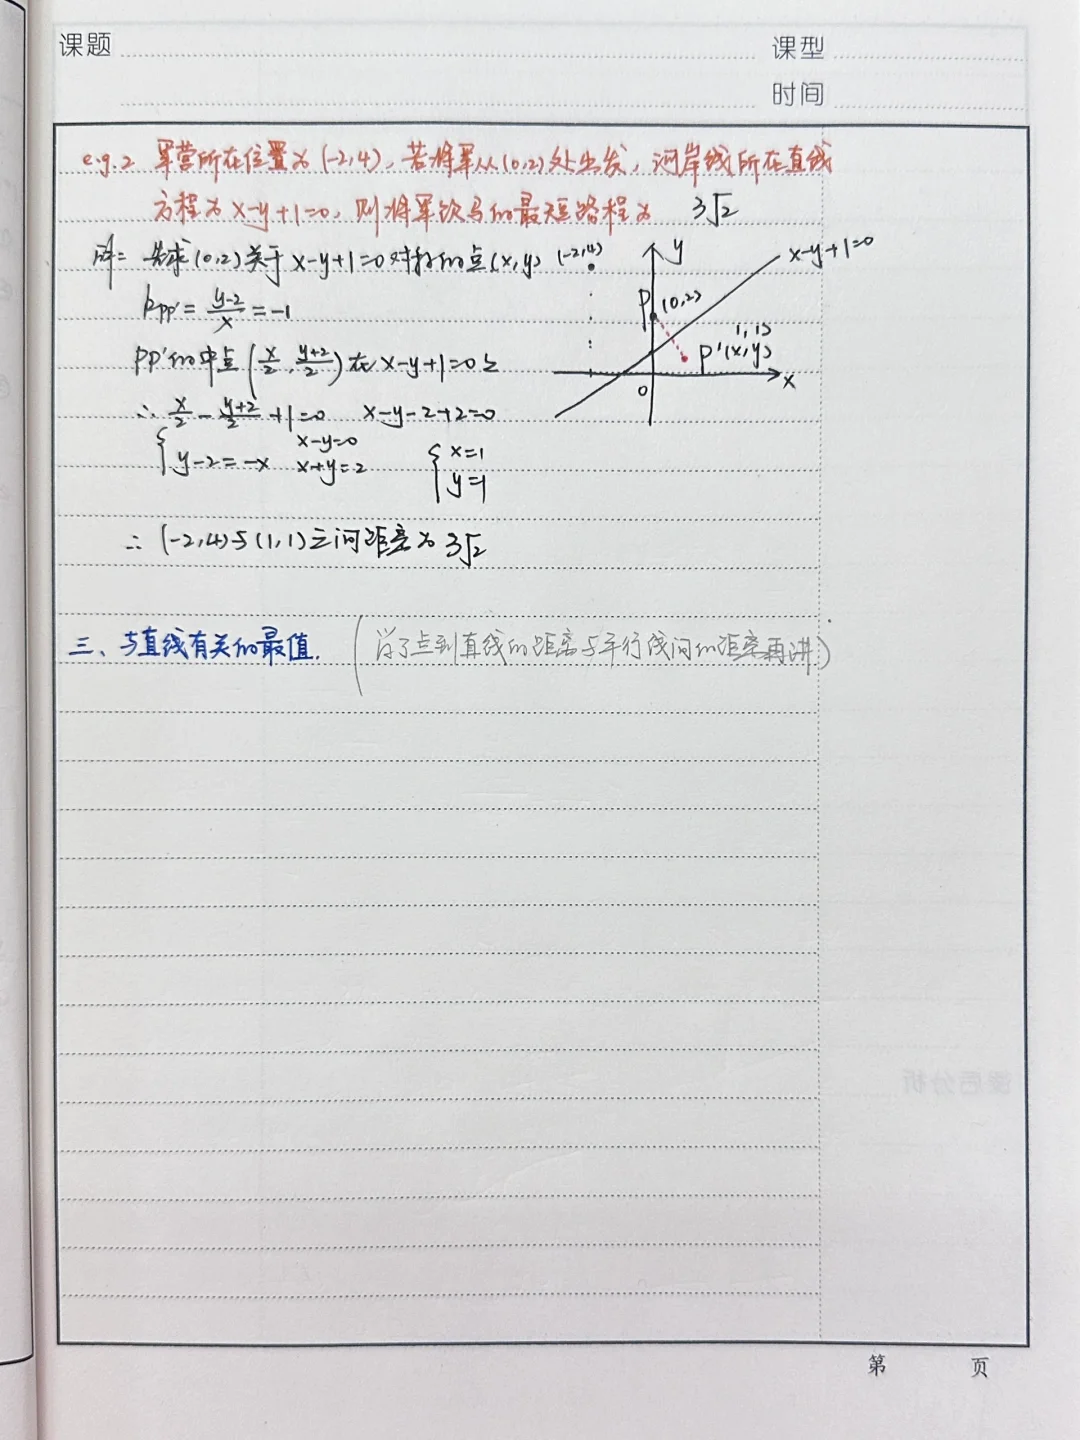 课题
课型
时间
e.g.2 军营所在位置为(-2,4),若将军从(0,2)处出发,河岸线所在直线
方程为x-y+1=0,则将军饮马的最短路程为 3√2
解: 先求(0,2)关于x-y+1=0对称的点(x,y)
(-2,4)
y
x-y+1=0
P (0,2)
1,1)
P'(x,y)
0
x
kpp'=\frac{y-2}{x}=-1
PP'的中点(\frac{x}{2},\frac{y+2}{2})在x-y+1=0上
∴ \frac{x}{2}-\frac{y+2}{2}+1=0 x-y-2+2=0
x-y=0
{y-2=-x x+y=2
{x=1
y=1
∴ (-2,4)与(1,1)之间距离为3√2
三、与直线有关的最值. (学了点到直线的距离与平行线间的距离再讲)
课后分析
第 页